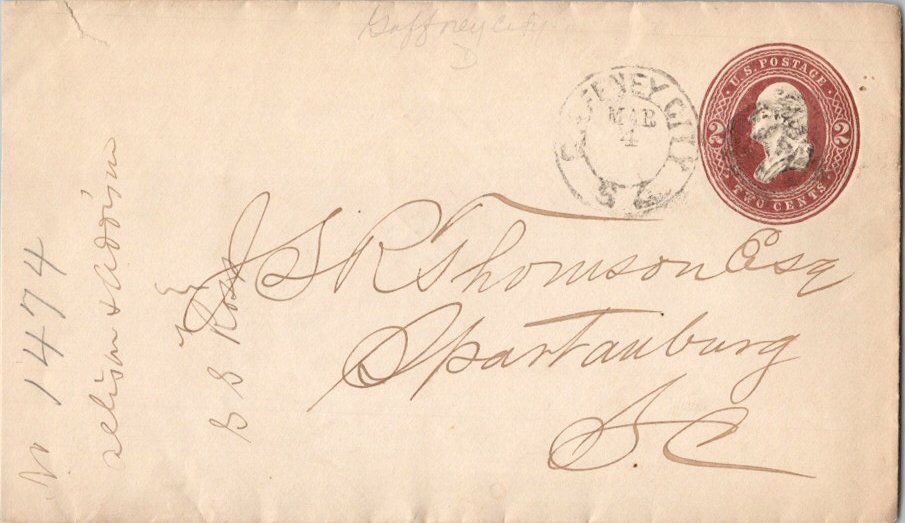 Gaffney City
GAFFNEY CITY
MAR
4
S. C.
U.S. POSTAGE
2 2
TWO CENTS
J S R Thomson Esq
Spartanburg
S C
No 1474
Allison & Addison
vs
Ross